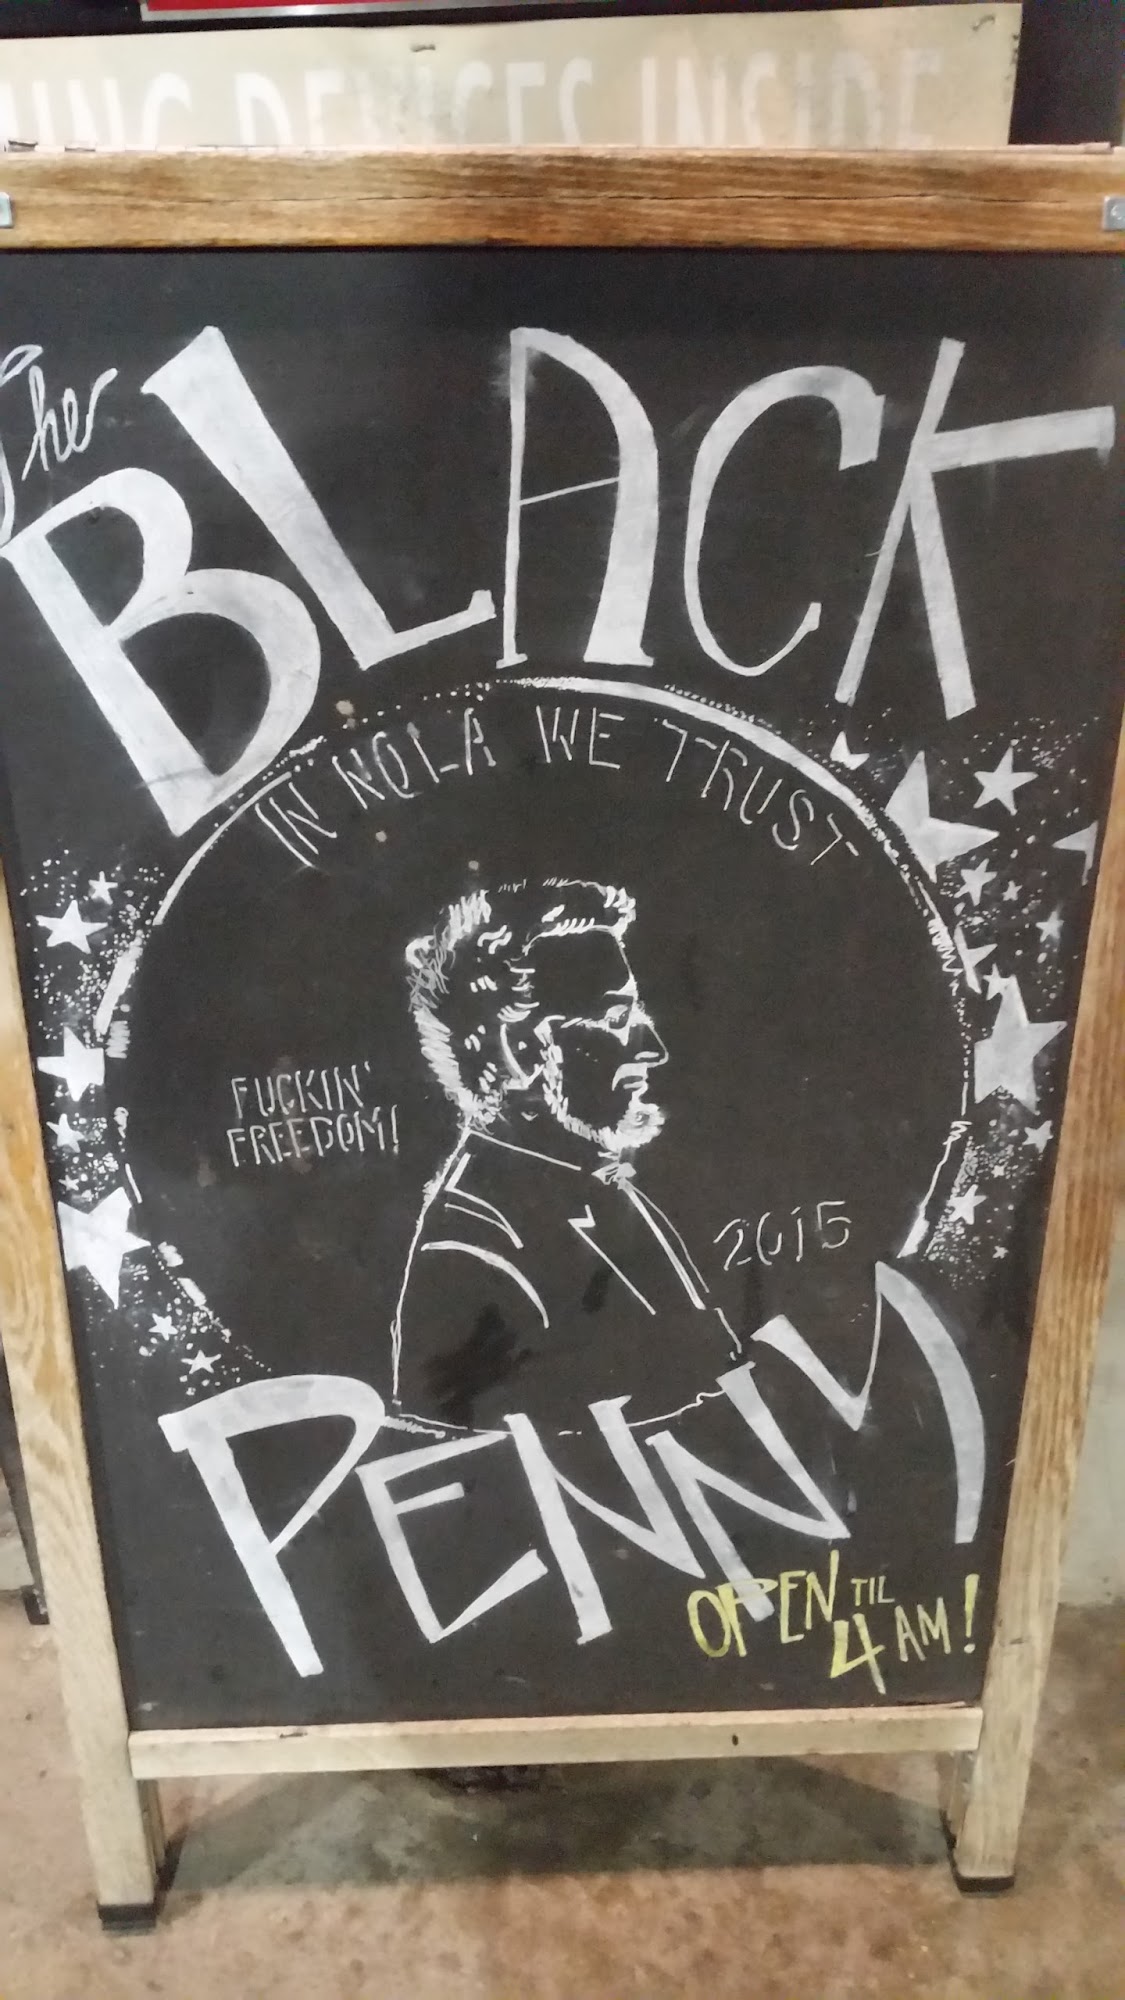 DEVICES INSIDE
The
BLACK
IN NOLA WE TRUST
FUCKIN'
FREEDOM!
2015
PENNY
OPEN TIL
4 AM!